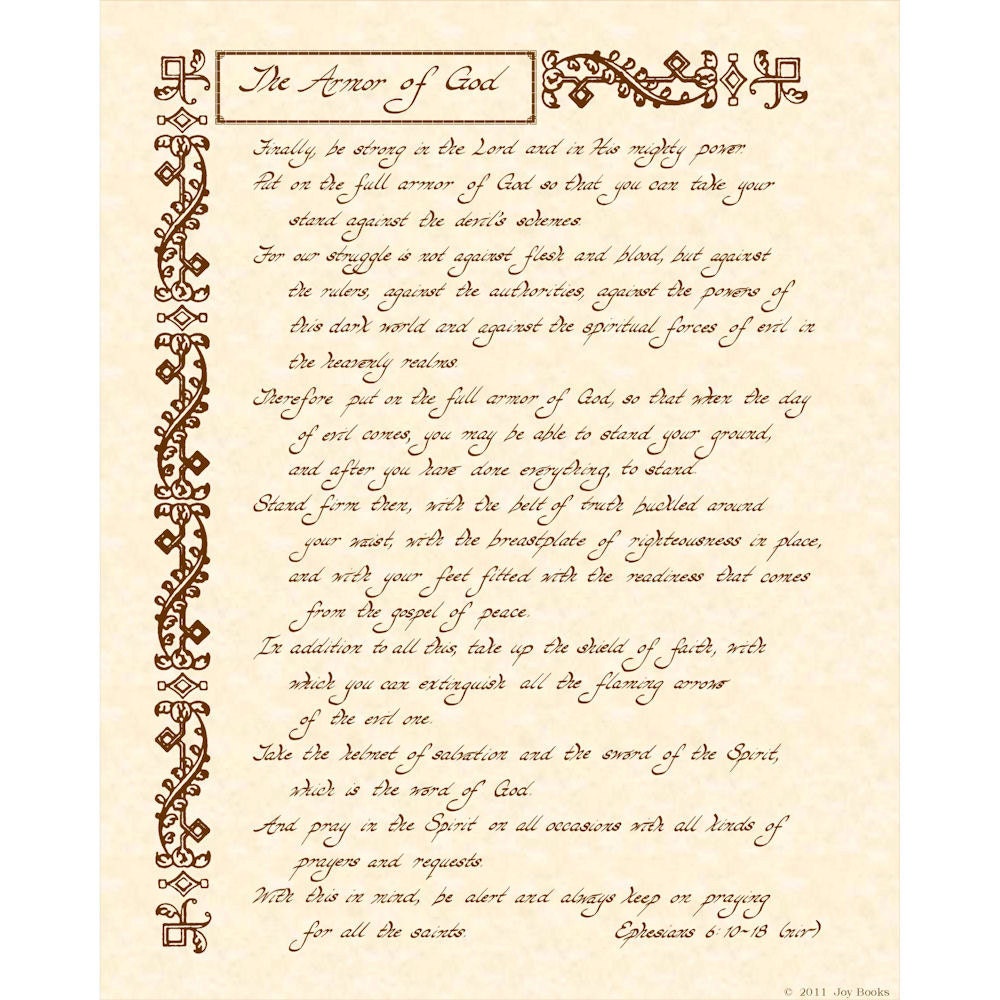 The Armor of God
Finally, be strong in the Lord and in His mighty power.
Put on the full armor of God so that you can take your
stand against the devil's schemes.
For our struggle is not against flesh and blood, but against
the rulers, against the authorities, against the powers of
this dark world and against the spiritual forces of evil in
the heavenly realms.
Therefore put on the full armor of God, so that when the day
of evil comes, you may be able to stand your ground,
and after you have done everything, to stand.
Stand firm then, with the belt of truth buckled around
your waist, with the breastplate of righteousness in place,
and with your feet fitted with the readiness that comes
from the gospel of peace.
In addition to all this, take up the shield of faith, with
which you can extinguish all the flaming arrows
of the evil one.
Take the helmet of salvation and the sword of the Spirit,
which is the word of God.
And pray in the Spirit on all occasions with all kinds of
prayers and requests.
With this in mind, be alert and always keep on praying
for all the saints.
Ephesians 6:10~18 (niv)
© 2011 Joy Books